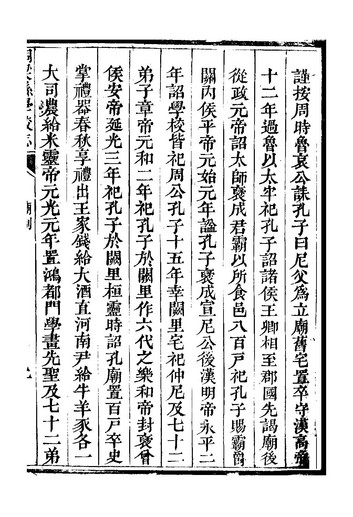 謹按周時魯哀公誄孔子曰尼父為立廟舊宅置卒守漢高帝
十二年過魯以太牢祀孔子詔諸侯王卿相至郡國先謁廟後
從政元帝詔太師褒成君霸以所食邑八百戸祀孔子賜霸爵
關內侯平帝元始元年謚孔子褒成宣尼公後漢明帝永平二
年詔學校皆祀周公孔子十五年幸闕里宅祀仲尼及七十二
弟子章帝元和二年祀孔子於闕里作六代之樂和帝封褒曾
侯安帝延光三年祀孔子於闕里桓靈時詔孔廟置百戸卒史
掌禮器春秋享禮出王家錢給大酒直河南尹給牛羊豕各一
大司農給米靈帝元光元年置鴻都門學畫先聖及七十二弟